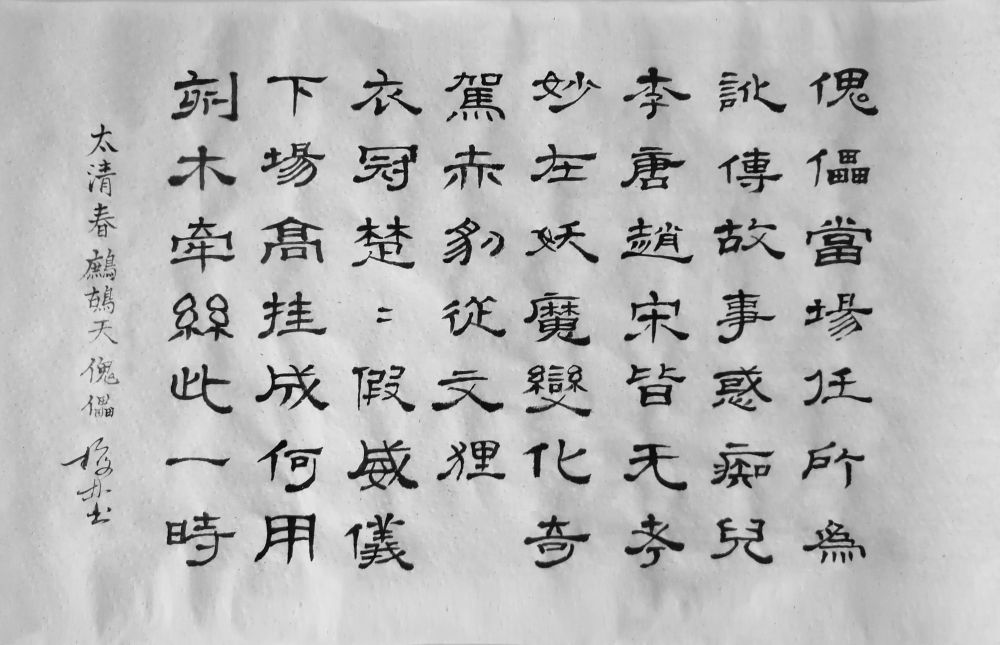 傀儡當場任所為
訛傳故事惑痴兒
李唐趙宋皆无考
妙在妖魔變化奇
駕赤豹從文狸
衣冠楚〻假威儀
下場髙挂成何用
刻木牽絲此一時
太清春鷓鴣天傀儡